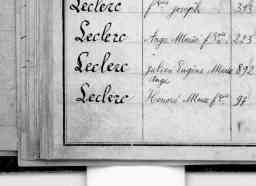 Leclerc fᵒⁱˢ Joseph 313
Leclerc Ange Marie fᵒⁱˢ 223
Leclerc Julien Eugène Marie 892
Ange
Leclerc Honoré Marie fᵒⁱˢ 98